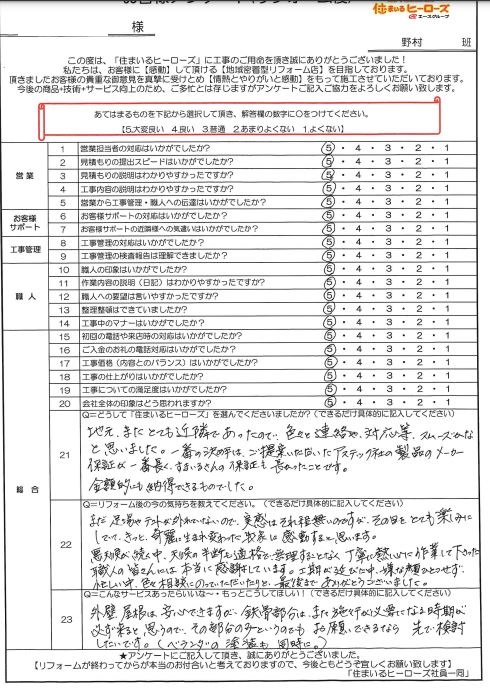 住まいるヒーローズ
エースグループ
様
野村 班
この度は、「住まいるヒーローズ」に工事のご用命を頂き誠にありがとうございました!
私たちは、お客様に【感動】して頂ける【地域密着型リフォーム店】を目指しております。
頂きましたお客様の貴重な御意見を真摯に受けとめ【情熱とやりがいと感動】をもって施工させていただいております。
今後の商品+技術+サービス向上のため、ご多忙とは存じますがアンケートご記入ご協力をよろしくお願い致します。
あてはまるものを下記から選択して頂き、解答欄の数字に〇をつけてください。
【5.大変良い 4.良い 3.普通 2.あまりよくない 1.よくない】
営業
1 営業担当者の対応はいかがでしたか? 5・4・3・2・1
2 見積もりの提出スピードはいかがでしたか? 5・4・3・2・1
3 見積もりの説明はわかりやすかったですか? 5・4・3・2・1
4 工事内容の説明はわかりやすかったですか? 5・4・3・2・1
5 営業から工事管理・職人への伝達はいかがでしたか? 5・4・3・2・1
お客様サポート
6 お客様サポートの対応はいかがでしたか? 5・4・3・2・1
7 お客様サポートの近隣様への気遣いはいかがでしたか? 5・4・3・2・1
工事管理
8 工事管理の対応はいかがでしたか? 5・4・3・2・1
9 工事管理の検査報告は理解できましたか? 5・4・3・2・1
職人
10 職人の印象はいかがでしたか? 5・4・3・2・1
11 作業内容の説明(日記)はわかりやすかったですか? 5・4・3・2・1
12 職人への要望は言いやすかったですか? 5・4・3・2・1
13 整理整頓はできていましたか? 5・4・3・2・1
14 工事中のマナーはいかがでしたか? 5・4・3・2・1
総合
15 初回の電話や来店時の対応はいかがでしたか? 5・4・3・2・1
16 ご入金のお礼の電話対応はいかがでしたか? 5・4・3・2・1
17 工事価格(内容とのバランス)はいかがでしたか? 5・4・3・2・1
18 工事の仕上がりはいかがでしたか? 5・4・3・2・1
19 工事についての満足度はいかがでしたか? 5・4・3・2・1
20 会社全体の印象はどう思われますか? 5・4・3・2・1
21
Q=どうして「住まいるヒーローズ」を選んでくださいましたか?(できるだけ具体的に記入してください)
地元、またとても近隣であったので、色々と連絡や、対応等、スムーズかな
と思いました。一番の決め手は、ご提案いただいたアステック社の製品のメーカー
保証が一番長く、すまいるさんの保証も長かったことです。
金額的にも納得できるものでした。
22
Q=リフォーム後の今の気持ちを教えてください。(できるだけ具体的に記入してください)
まだ足場やテントが外れていないので、実感はそれ程無いのですが、その日をとても楽しみに
していて、きっと、綺麗に生まれ変わった我家に感動すると思います。
天候の判断も適格で、無理することなく、丁寧に熱心に作業して下さった
職人の皆さんには本当に感謝しています。工期が延びた中、嫌な顔ひとつせず、
忙しい中、色々相談にのっていただいたりと、最後まで ありがとうございました。
23
Q=こんなサービスあったらいいな~・もっとこうしてほしい!(できるだけ具体的に記入してください)
外壁、屋根は、安心できますが、鉄骨部分は、また施工が必要になる時期が
必ず来ると思うので、その部分のみというのでもお願いできるなら 先で検討
したいです。(ベランダの塗装も同時に。)
★アンケートにご記入して頂き、誠にありがとうございました。
【リフォームが終わってからが本当のお付合いと考えておりますので、今後ともどうぞ宜しくお願い致します】
「住まいるヒーローズ社員一同」